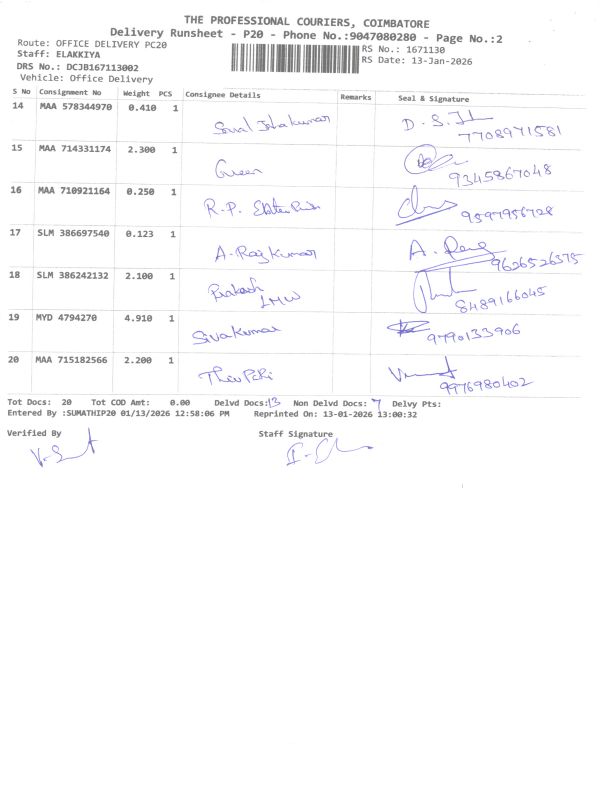 THE PROFESSIONAL COURIERS, COIMBATORE
Delivery Runsheet - P20 - Phone No.:9047080280 - Page No.:2
Route: OFFICE DELIVERY PC20
RS No.: 1671130
Staff: ELAKKIYA
RS Date: 13-Jan-2026
DRS No.: DCJB167113002
Vehicle: Office Delivery
S No Consignment No Weight PCS Consignee Details Remarks Seal & Signature
14 MAA 578344970 0.410 1
7708971581
15 MAA 714331174 2.300 1 Green
9345867048
16 MAA 710921164 0.250 1 R.P.
9597956728
17 SLM 386697540 0.123 1 A-Raj Kumar A.
9626526375
18 SLM 386242132 2.100 1 Prakash
LMW
8489166045
19 MYD 4794270 4.910 1 Siva Kumar
9790133906
20 MAA 715182566 2.200 1
9976980402
Tot Docs: 20 Tot COD Amt: 0.00 Delvd Docs: 13 Non Delvd Docs: 7 Delvy Pts:
Entered By :SUMATHIP20 01/13/2026 12:58:06 PM Reprinted On: 13-01-2026 13:00:32
Verified By Staff Signature